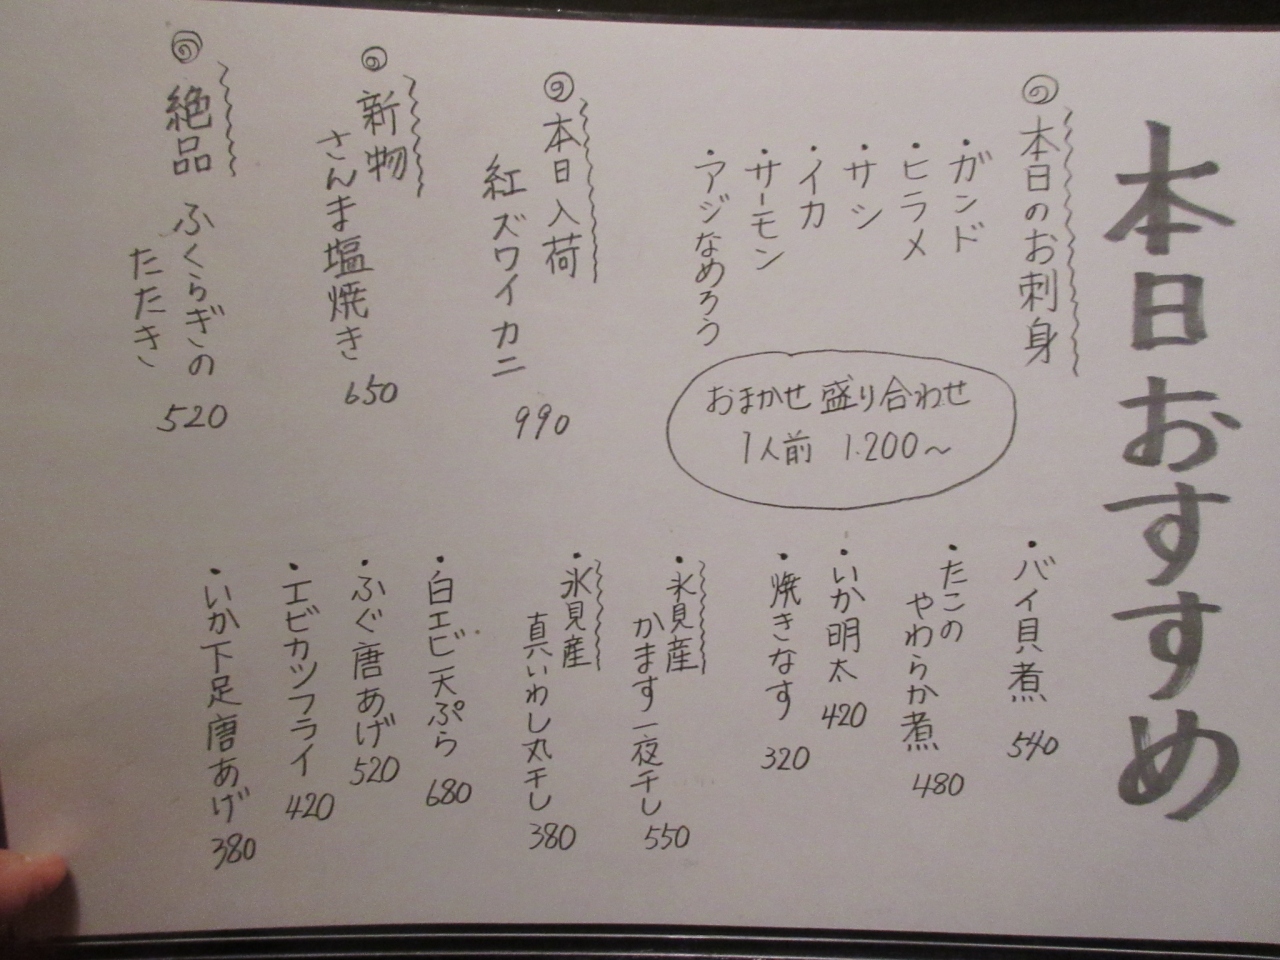 本日おすすめ
本日のお刺身
・ガンド
・ヒラメ
・サシ
・イカ
・サーモン
・アジなめろう
おまかせ盛り合わせ
1人前 1.200～
本日入荷
紅ズワイカニ
990
新物
さんま塩焼き
650
絶品 ふくらぎの
たたき
520
・バイ貝煮 540
・たこの
やわらか煮
480
・いか明太 420
・焼きなす 320
・氷見産
かます一夜干し 550
・氷見産
真いわし丸干し 380
・白エビ天ぷら 680
・ふぐ唐あげ 520
・エビカツフライ 420
・いか下足唐あげ 380